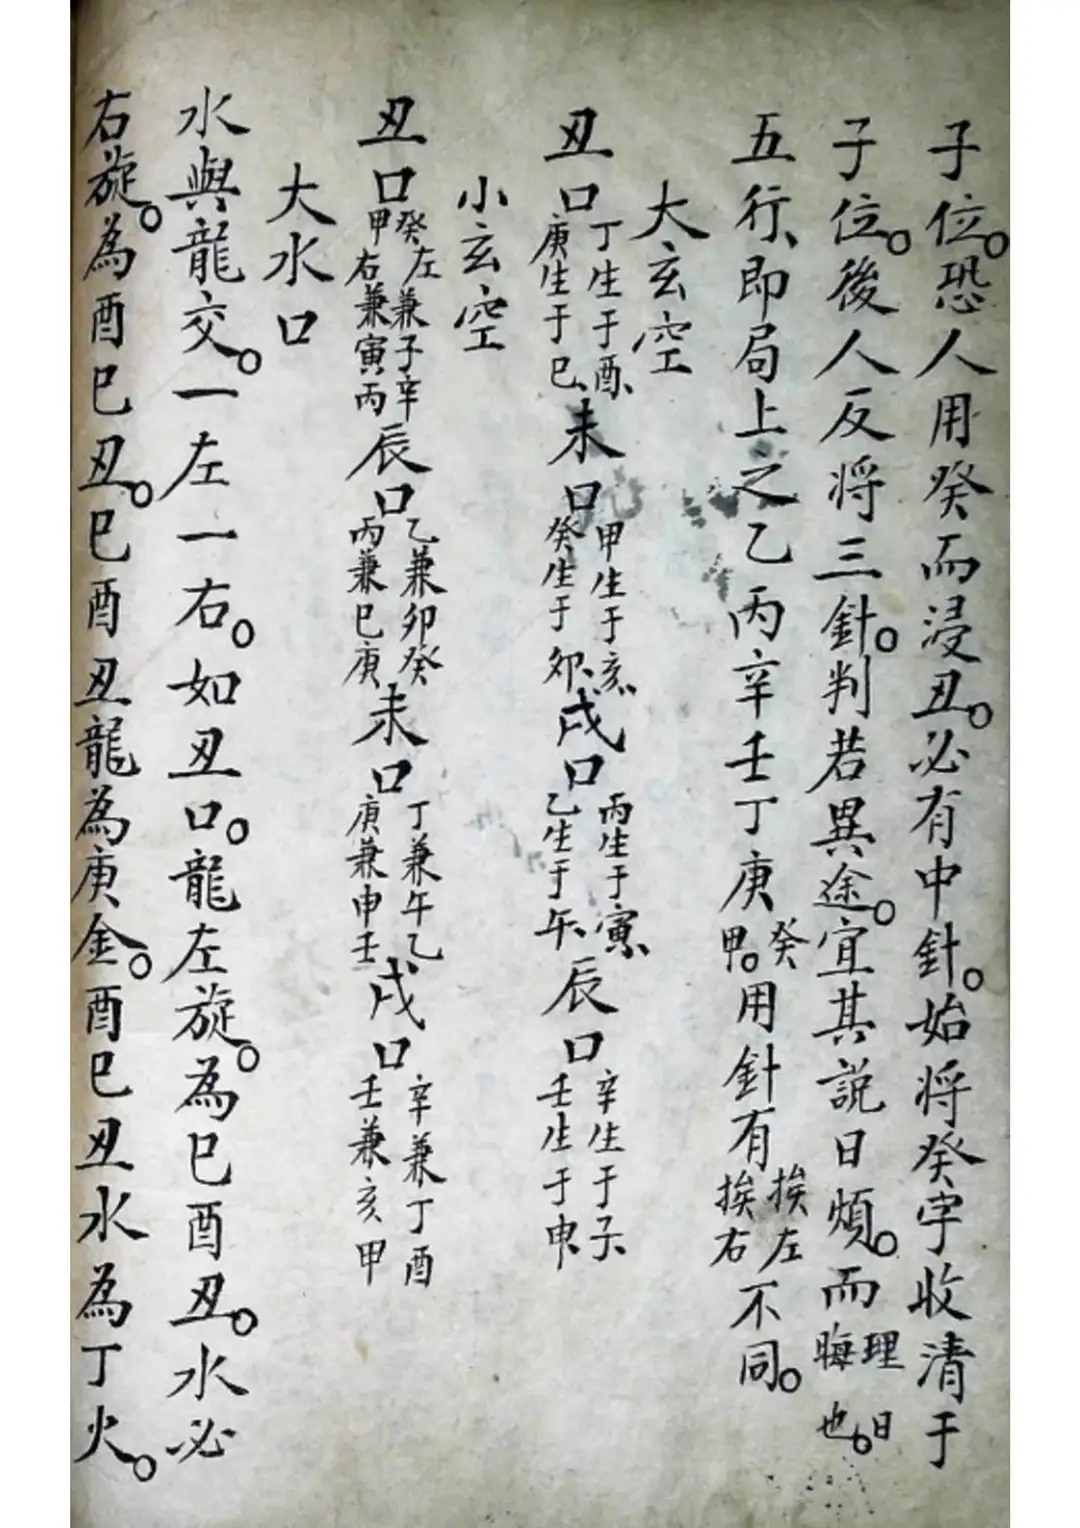 子位。恐人用癸而浸丑。必有中針。始将癸字收清于
子位。後人反将三針。判若異途。宜其説日煩。而理日晦也。
五行、即局上之乙丙辛壬丁庚癸甲。用針有挨左挨右不同。
大玄空
丑口丁生于酉、庚生于巳、未口甲生于亥、癸生于卯、戌口丙生于寅、乙生于午、辰口辛生于子、壬生于申、
小玄空
丑口癸左兼子辛甲右兼寅丙辰口乙兼卯癸丙兼巳庚未口丁兼午乙庚兼申壬戌口辛兼丁酉壬兼亥甲
大水口
水與龍交。一左一右。如丑口。龍左旋。為巳酉丑。水必
右旋。為酉巳丑。巳酉丑龍為庚金。酉巳丑水為丁火。